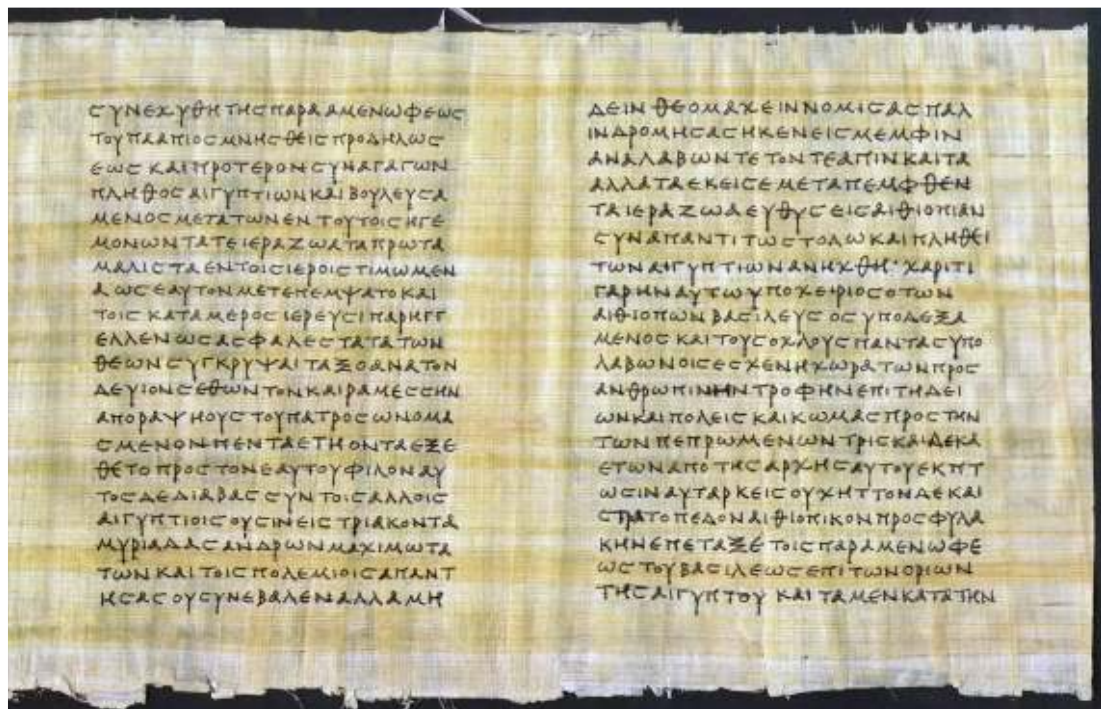 ΣΥΝΕΧΥΘΗΤΗΣΠΑΡΑΑΜΕΝΩΦΕΩΣ
ΤΟΥΠΑΑΠΙΟΣΜΝΗΣΘΕΙΣΠΡΟΔΗΛΩΣ
ΕΩΣΚΑΙΠΡΟΤΕΡΟΝΣΥΝΑΓΑΓΩΝ
ΠΛΗΘΟΣΑΙΓΥΠΤΙΩΝΚΑΙΒΟΥΛΕΥΣΑ
ΜΕΝΟΣΜΕΤΑΤΩΝΕΝΤΟΥΤΟΙΣΗΓΕ
ΜΟΝΩΝΤΑΤΕΙΕΡΑΖΩΑΤΑΠΡΩΤΑ
ΜΑΛΙΣΤΑΕΝΤΟΙΣΙΕΡΟΙΣΤΙΜΩΜΕΝ
ΑΩΣΕΑΥΤΟΝΜΕΤΕΠΕΜΨΑΤΟΚΑΙ
ΤΟΙΣΚΑΤΑΜΕΡΟΣΙΕΡΕΥΣΙΠΑΡΗΓΓ
ΕΛΛΕΝΩΣΑΣΦΑΛΕΣΤΑΤΑΤΩΝ
ΘΕΩΝΣΥΓΚΡΥΨΑΙΤΑΞΟΑΝΑΤΟΝ
ΔΕΥΙΟΝΣΕΘΩΝΤΟΝΚΑΙΡΑΜΕΣΣΗΝ
ΑΠΟΡΑΨΗΟΥΣΤΟΥΠΑΤΡΟΣΩΝΟΜΑ
ΣΜΕΝΟΝΠΕΝΤΑΕΤΗΟΝΤΑΕΞΕ
ΘΕΤΟΠΡΟΣΤΟΝΕΑΥΤΟΥΦΙΛΟΝΑΥ
ΤΟΣΔΕΔΙΑΒΑΣΣΥΝΤΟΙΣΑΛΛΟΙΣ
ΑΙΓΥΠΤΙΟΙΣΟΥΣΙΝΕΙΣΤΡΙΑΚΟΝΤΑ
ΜΥΡΙΑΔΑΣΑΝΔΡΩΝΜΑΧΙΜΩΤΑ
ΤΩΝΚΑΙΤΟΙΣΠΟΛΕΜΙΟΙΣΑΠΑΝΤ
ΗΣΑΣΟΥΣΥΝΕΒΑΛΕΝΑΛΛΑΜΗ
ΔΕΙΝΘΕΟΜΑΧΕΙΝΝΟΜΙΣΑΣΠΑΛ
ΙΝΔΡΟΜΗΣΑΣΗΚΕΝΕΙΣΜΕΜΦΙΝ
ΑΝΑΛΑΒΩΝΤΕΤΟΝΤΕΑΠΙΝΚΑΙΤΑ
ΑΛΛΑΤΑΕΚΕΙΣΕΜΕΤΑΠΕΜΦΘΕΝ
ΤΑΙΕΡΑΖΩΑΕΥΘΥΣΕΙΣΑΙΘΙΟΠΙΑΝ
ΣΥΝΑΠΑΝΤΙΤΩΣΤΟΛΩΚΑΙΠΛΗΘΕΙ
ΤΩΝΑΙΓΥΠΤΙΩΝΑΝΗΧΘΗ·ΧΑΡΙΤΙ
ΓΑΡΗΝΑΥΤΩΥΠΟΧΕΙΡΙΟΣΟΤΩΝ
ΑΙΘΙΟΠΩΝΒΑΣΙΛΕΥΣΟΣΥΠΟΔΕΞΑ
ΜΕΝΟΣΚΑΙΤΟΥΣΟΧΛΟΥΣΠΑΝΤΑΣΥΠΟ
ΛΑΒΩΝΟΙΣΕΣΧΕΝΗΧΩΡΑΤΩΝΠΡΟΣ
ΑΝΘΡΩΠΙΝΗΝΤΡΟΦΗΝΕΠΙΤΗΔΕΙ
ΩΝΚΑΙΠΟΛΕΙΣΚΑΙΚΩΜΑΣΠΡΟΣΤΗΝ
ΤΩΝΠΕΠΡΩΜΕΝΩΝΤΡΙΣΚΑΙΔΕΚΑ
ΕΤΩΝΑΠΟΤΗΣΑΡΧΗΣΑΥΤΟΥΕΚΠΤ
ΩΣΙΝΑΥΤΑΡΚΕΙΣΟΥΧΗΤΤΟΝΔΕΚΑΙ
ΣΤΡΑΤΟΠΕΔΟΝΑΙΘΙΟΠΙΚΟΝΠΡΟΣΦΥΛΑ
ΚΗΝΕΠΕΤΑΞΕΤΟΙΣΠΑΡΑΜΕΝΩΦΕ
ΩΣΤΟΥΒΑΣΙΛΕΩΣΕΠΙΤΩΝΟΡΙΩΝ
ΤΗΣΑΙΓΥΠΤΟΥΚΑΙΤΑΜΕΝΚΑΤΑΤΗΝ